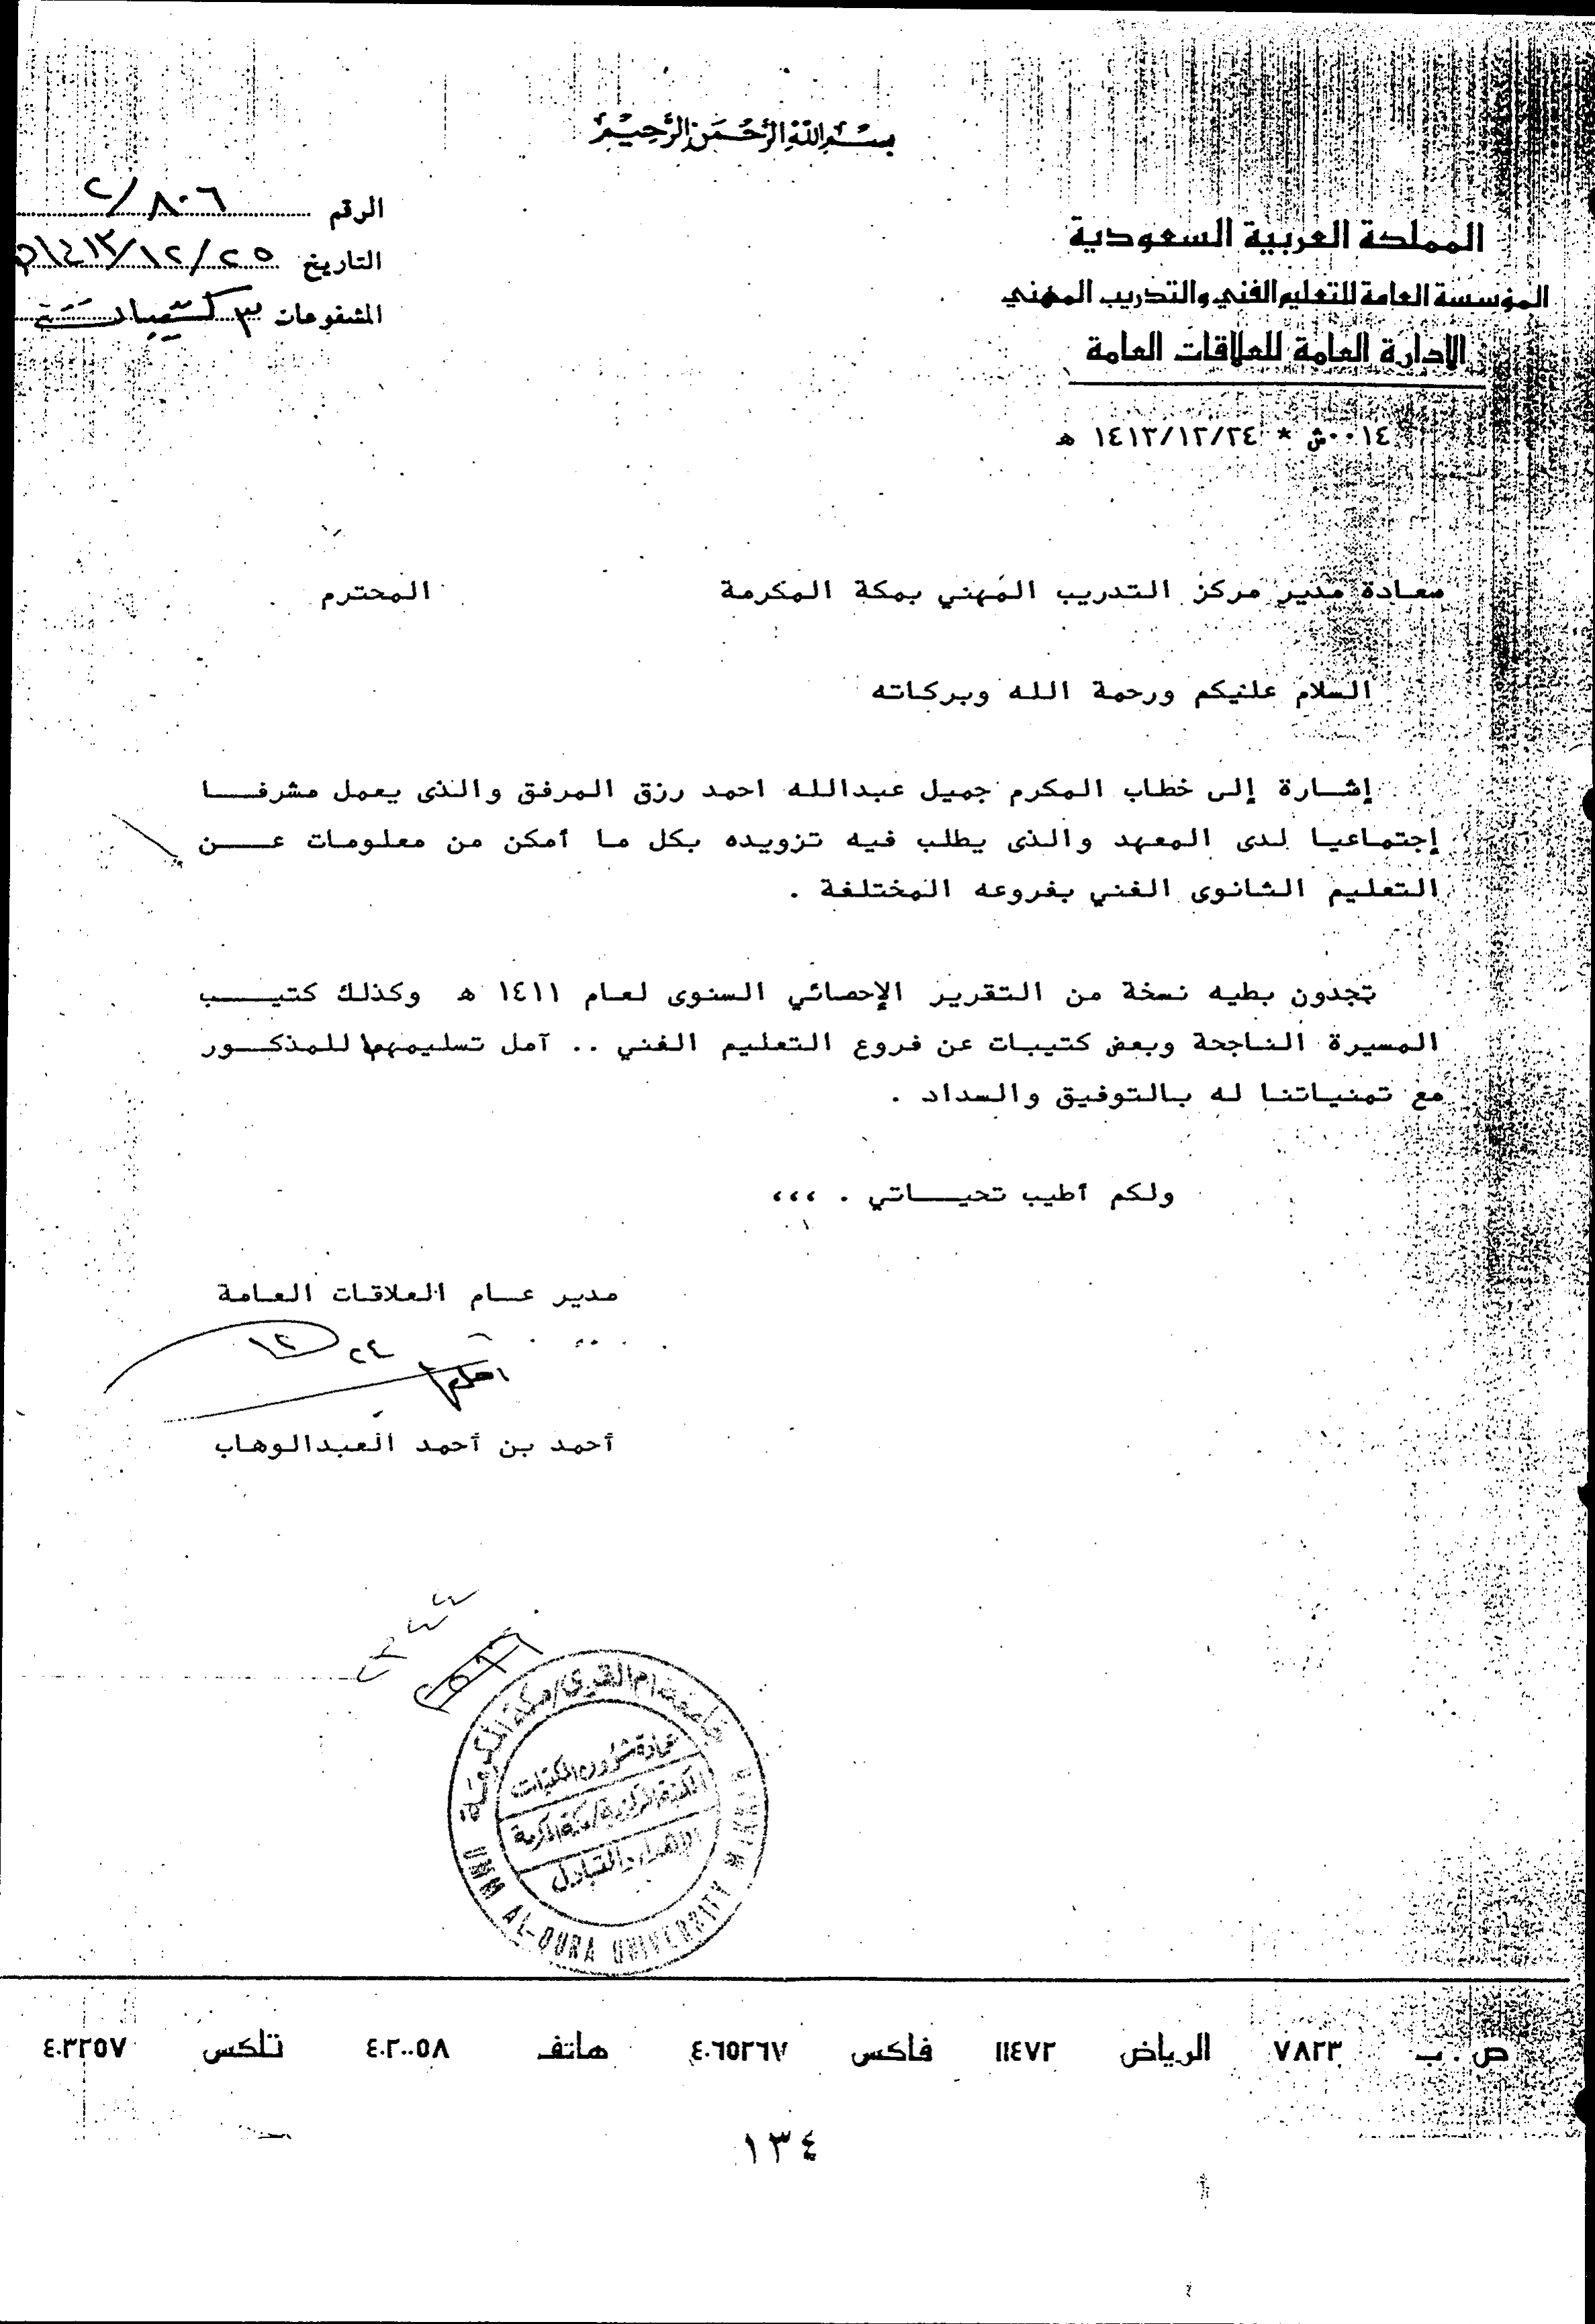 بسم الله الرحمن الرحيم
المملكة العربية السعودية
المؤسسة العامة للتعليم الفني والتدريب المهني
الادارة العامة للعلاقات العامة
الرقم ٢/٨٠٦
التاريخ ١٤١٣/١٢/٢٥ه
المشفوعات ٣ كتيبات
٠٠١٤ش * ١٤١٣/١٢/٢٤ ه
سعادة مدير مركز التدريب المهني بمكة المكرمة المحترم
السلام عليكم ورحمة الله وبركاته
إشارة إلى خطاب المكرم جميل عبدالله احمد رزق المرفق والذى يعمل مشرفا
إجتماعيا لدى المعهد والذى يطلب فيه تزويده بكل ما أمكن من معلومات عن
التعليم الثانوى الفني بفروعه المختلفة .
تجدون بطيه نسخة من التقرير الإحصائي السنوى لعام ١٤١١ ه وكذلك كتيب
المسيرة الناجحة وبعض كتيبات عن فروع التعليم الفني .. آمل تسليمها للمذكور
مع تمنياتنا له بالتوفيق والسداد .
ولكم أطيب تحياتي . ،،،
مدير عام العلاقات العامة
٢٤ ١٢
أحمد بن أحمد العبدالوهاب
جامعة ام القرى/مكة المكرمة
عمادة شؤون المكتبات
المكتبة المركزية/مكة المكرمة
الإهداء والتبادل
UMM AL-QURA UNIVERSITY
ص . ب ٧٨٢٣ الرياض ١١٤٧٢ فاكس ٤٠٦٥٢٦٧ هاتف ٤٠٢٠٠٥٨ تلكس ٤٠٣٢٥٧
١٣٤